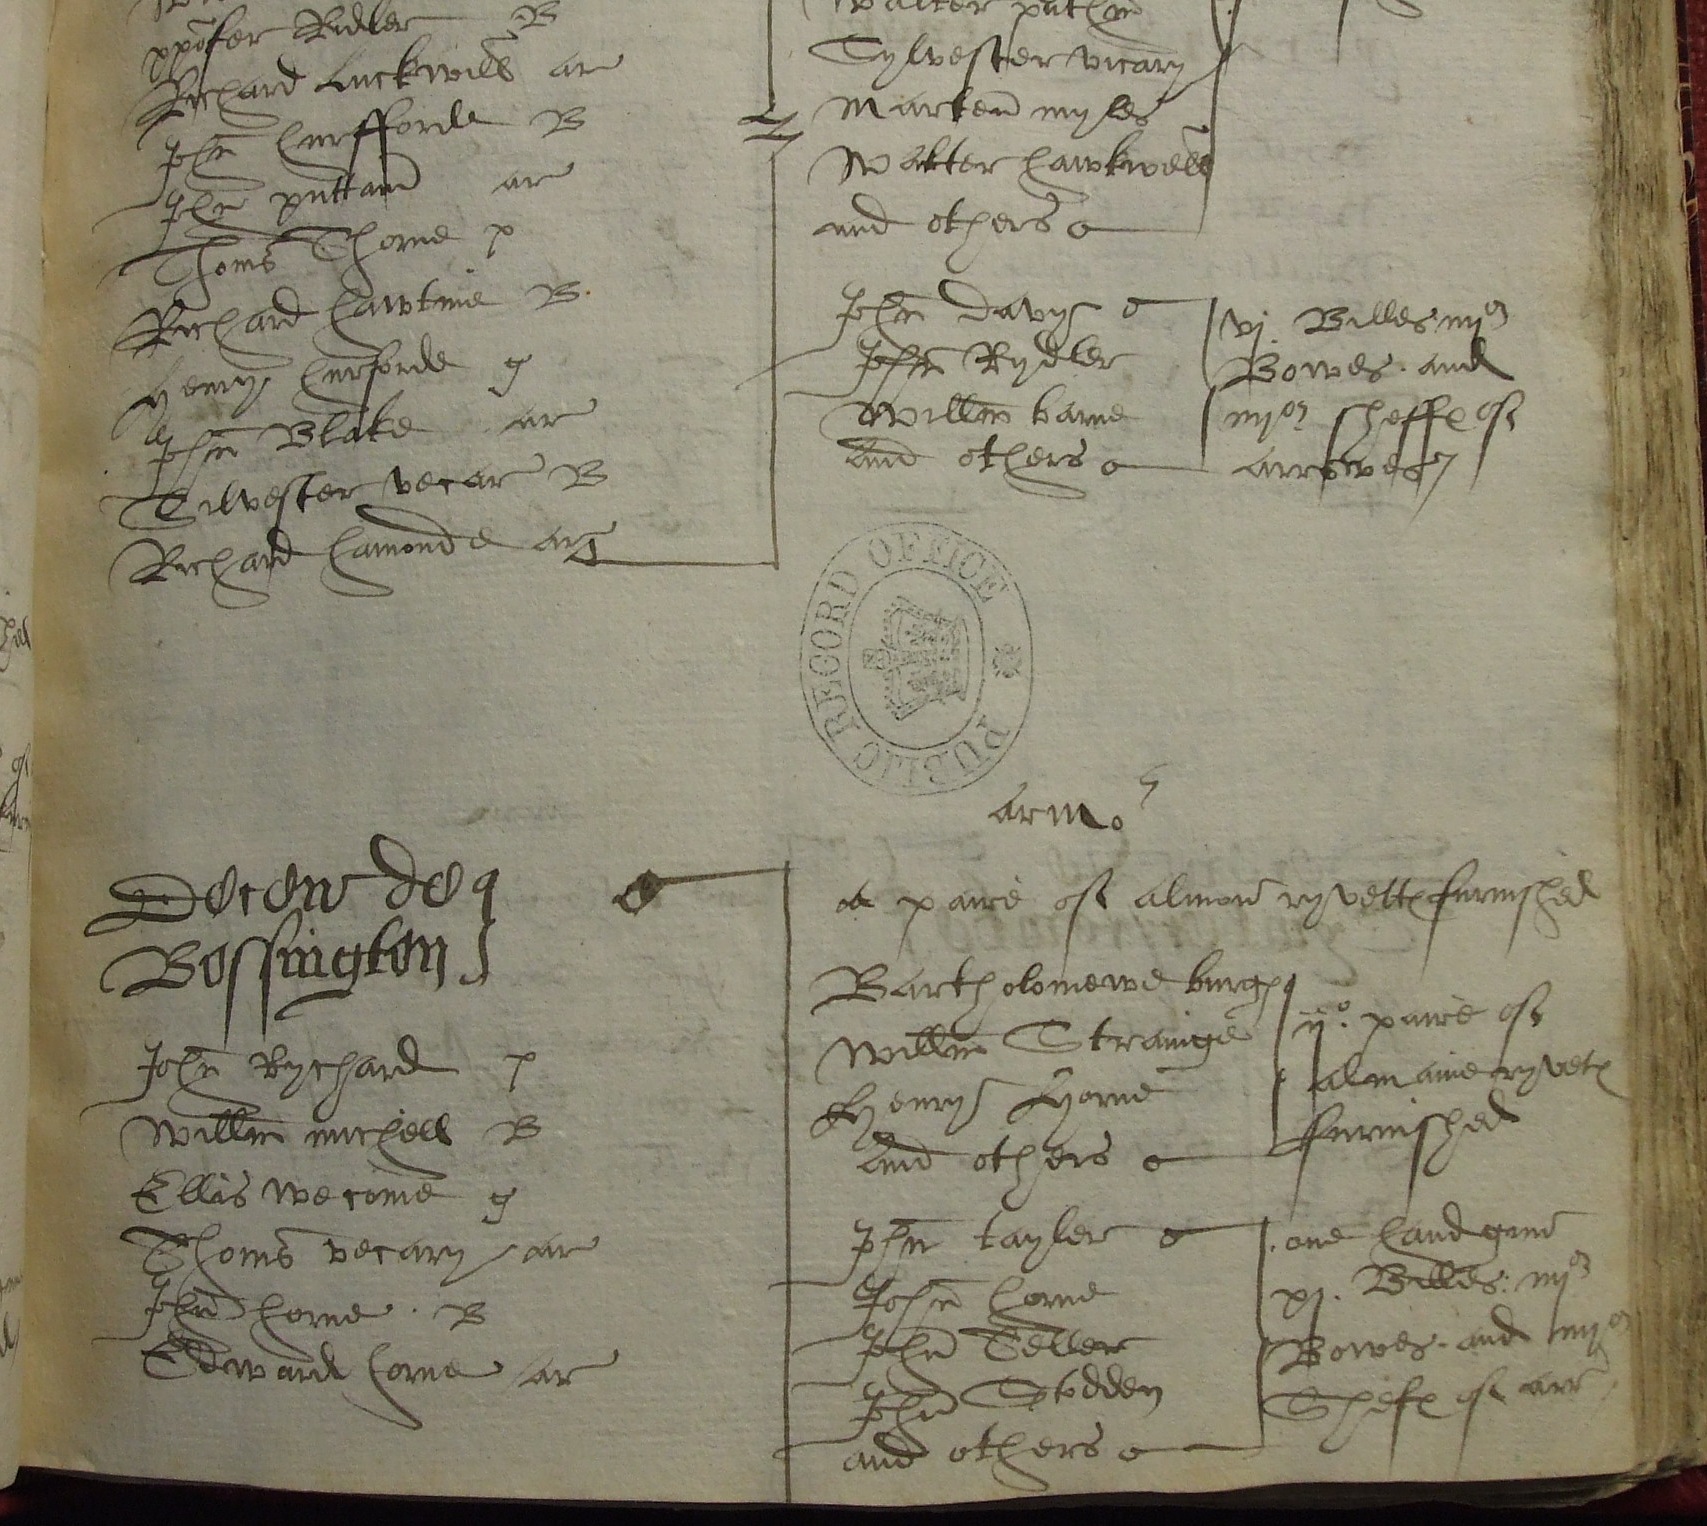 xpofer Ridler B
Richard Luckwill ar
John Hurfforde B
John puttam ar
Thoms Thorne p
Richard Hawkine B
Henry Hurforde g
John Blake ar
Silvester vecar B
Richard Hamonde ar
Walter
Sylvester vicary
Marten myles
Walter Hawkwell
and others
John Davys
John Rydler
Willm
and others
vj. Billes iiijor
Bowes. and
iiijor sheffe of
arrowes
PUBLIC RECORD OFFICE
armor
Decen de
Bossington
John Rychard p
Willm michell B
Ellis wecome g
Thoms vecary ar
John Horne. B
Edward Horne ar
a paire of almon ryvette furnished
Bartholomewe
Willm Strainge
Henry Hyorne
and others
ijo. paire of
almaine ryvet
furnished
John tayler
John Horne
John Teller
John Stodden
and others
one handgunn
xj. Billes: iiijor
Bowes. and iiijor
Shefe of arr